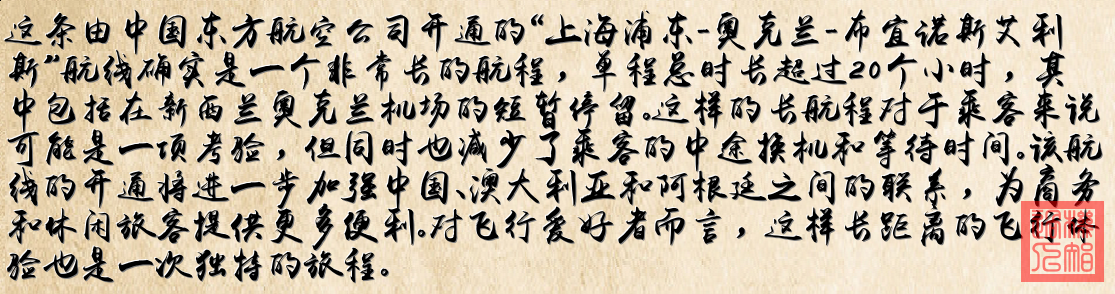 这条由中国东方航空公司开通的“上海浦东-奥克兰-布宜诺斯艾利
斯”航线确实是一个非常长的航程，单程总时长超过20个小时，其
中包括在新西兰奥克兰机场的短暂停留。这样的长航程对于乘客来说
可能是一项考验，但同时也减少了乘客的中途换机和等待时间。该航
线的开通将进一步加强中国、澳大利亚和阿根廷之间的联系，为商务
和休闲旅客提供更多便利。对飞行爱好者而言，这样长距离的飞行体
验也是一次独特的旅程。